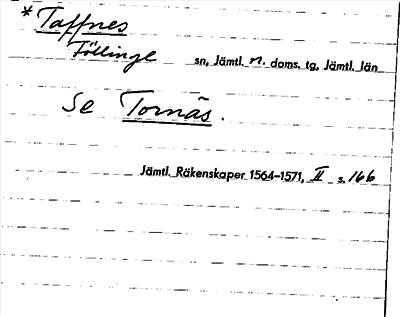 * Taffnes
Föllinge sn, Jämtl. n. doms. tg, Jämtl. län
Se Tornäs.
Jämtl. Räkenskaper 1564-1571, II s. 166